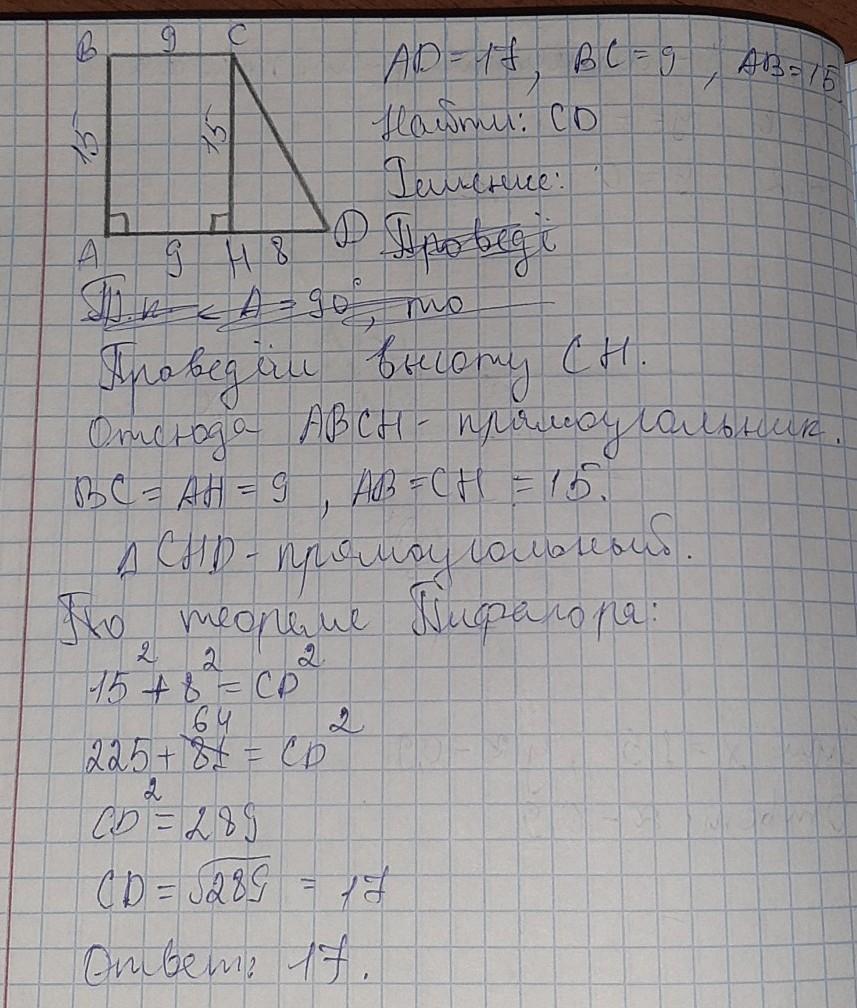 B 9 C
AD = 17, BC = 9, AB = 15
15 15
Найти: CD
Решение:
A 9 H 8 D
Проведё
Т.к ∠A = 90°, то
Проведём высоту CH.
Отсюда ABCH - прямоугольник.
BC = AH = 9, AB = CH = 15.
Δ CHD - прямоугольный.
По теореме Пифагора:
15² + 8² = CD²
64
225 + 81 = CD²
CD² = 289
CD = √289 = 17
Ответ: 17.